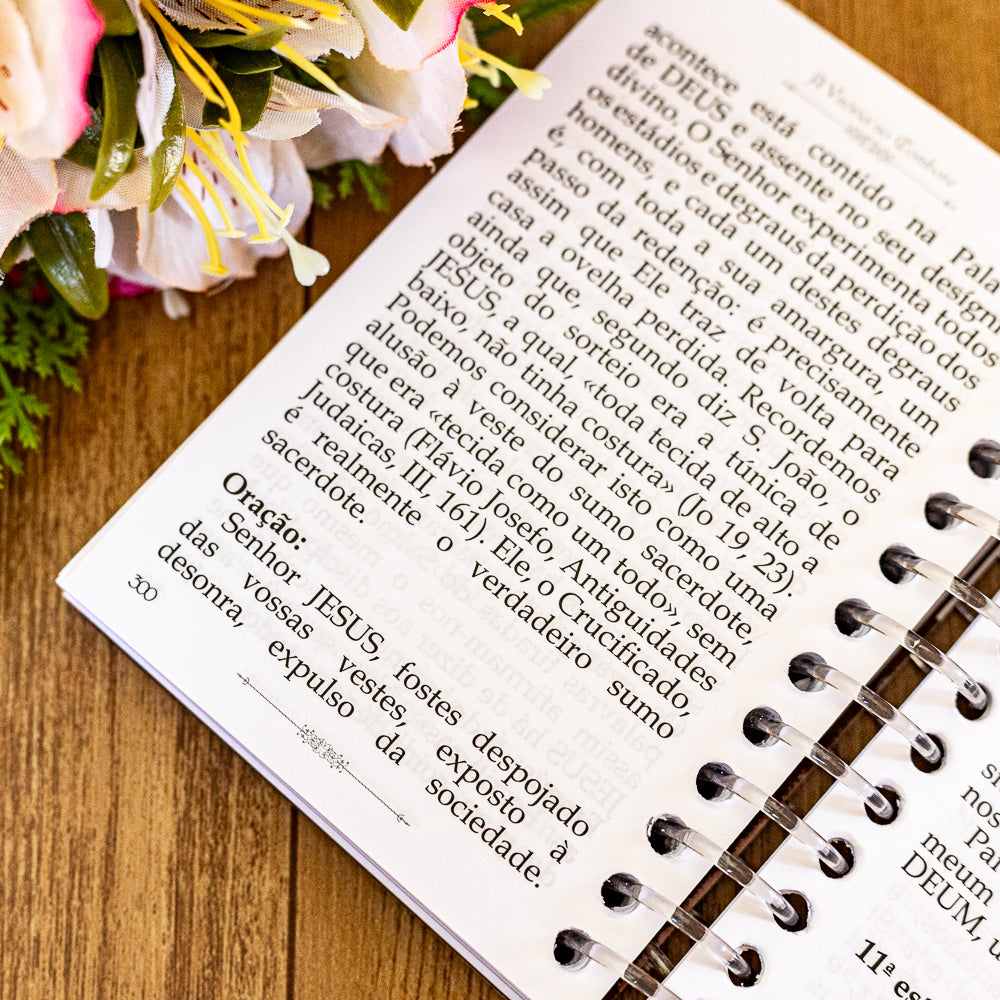 acontece está contido na Pala
de DEUS e assente no seu desígni
divino. O Senhor experimenta todos
os estádios e degraus da perdição dos
homens, e cada um destes degraus
é, com toda a sua amargura, um
passo da redenção: é precisamente
assim que Ele traz de volta para
casa a ovelha perdida. Recordemos
ainda que, segundo diz S. João, o
objeto do sorteio era a túnica de
JESUS, a qual, «toda tecida de alto a
baixo, não tinha costura» (Jo 19, 23).
Podemos considerar isto como uma
alusão à veste do sumo sacerdote,
que era «tecida como um todo», sem
costura (Flávio Josefo, Antiguidades
Judaicas, III, 161). Ele, o Crucificado,
é realmente o verdadeiro sumo
sacerdote.
Oração:
Senhor JESUS, fostes despojado
das vossas vestes, exposto à
desonra, expulso da sociedade.
300
si
nos
Pai
meum
DEUM, u
11ª est